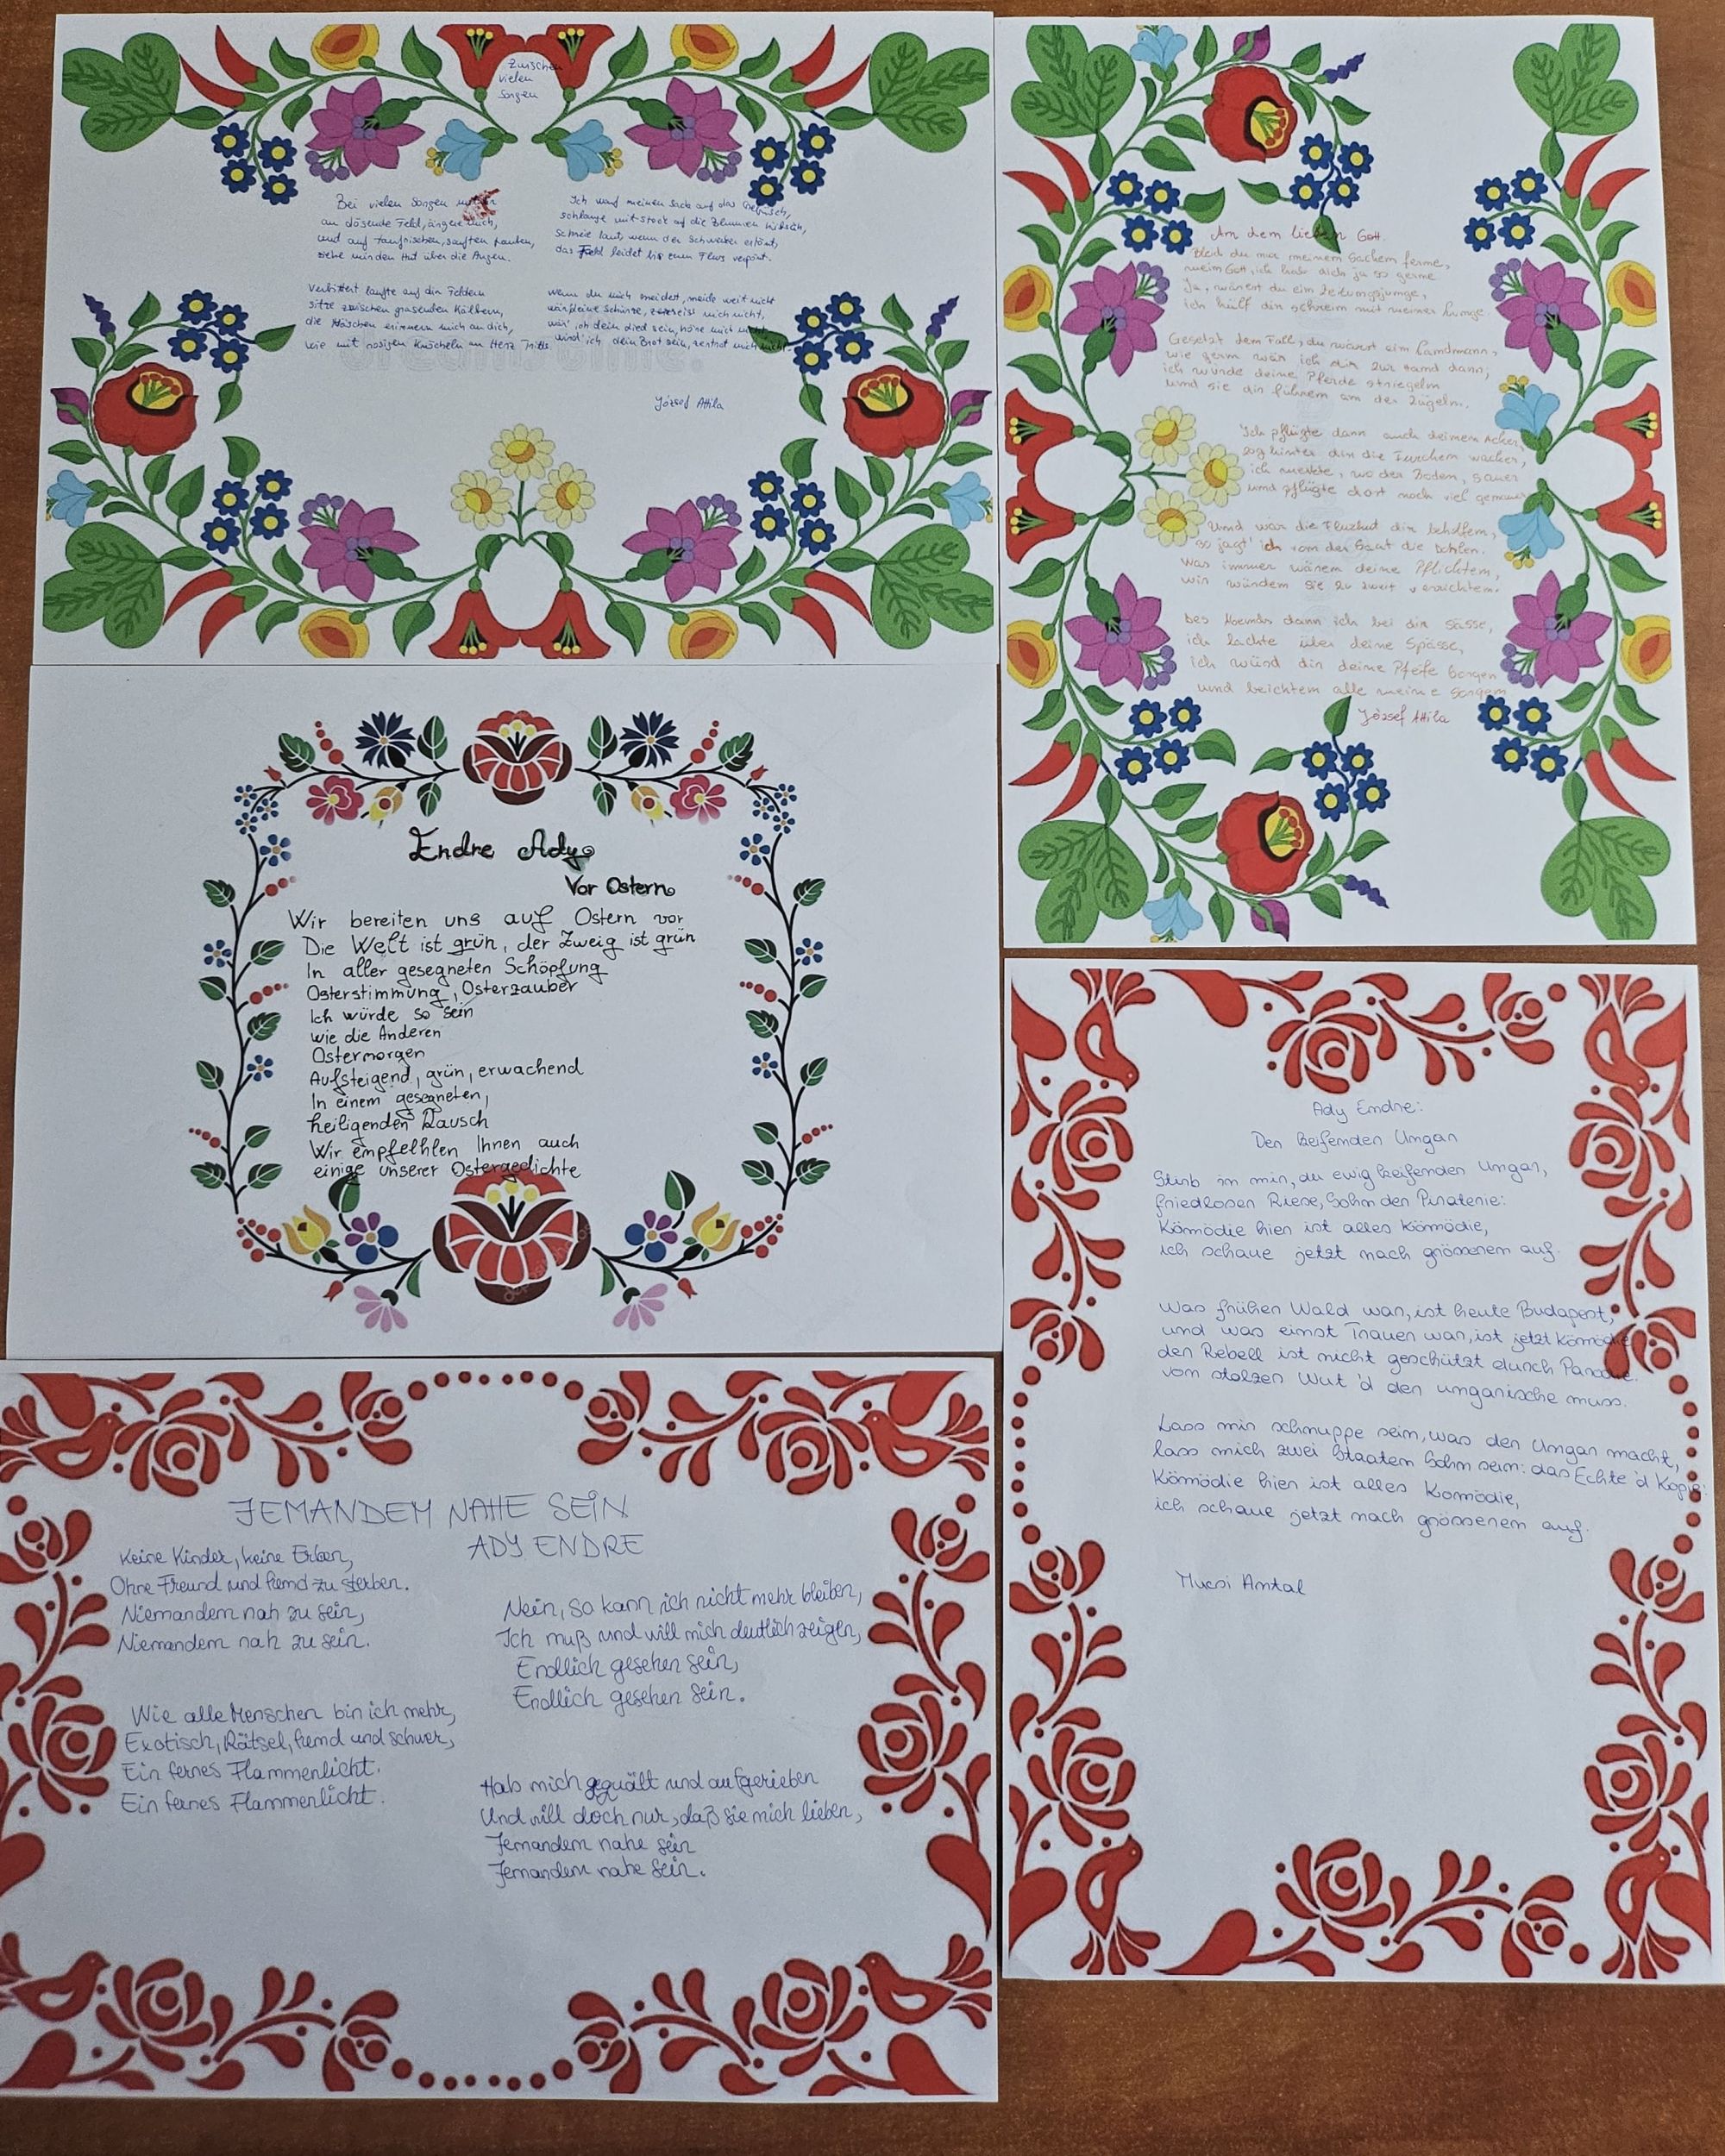 Zwischen
vielen
Sorgen
Bei vielen Sorgen
am dösende Feld, ärgere mich,
und auf taufrischen, sanften Pauken,
ziehe mir den Hut über die Augen.
Verbittert laufte auf den Feldern
sitze zwischen grasenden Kälbern,
die Häschen erinnern mich an dich,
wie mit rosigen Knöcheln am Herz Tritte
Ich warf meinen Sack auf das Gebüsch,
schlange mit stock auf die Blumen hübsch,
schreie laut, wenn der Schwaber ertönt,
das Feld leidet bis zum Fluss verpönt.
wenn du mich meidest, meide weit nicht
wär deine Schürze, zerreiss mich nicht,
wär' ich dein Lied sein, höre mich
wird' ich dein Brot sein, zertret mich nicht.
József Attila
An dem lieben Gott
Bleib du mir meinem Sachem ferme,
meim Gott, ich hab dich ja so germe
Ja, wärest du eim Zeitumgsjumge,
ich hülf dir schreim mit meimer Lumge.
Gesetzt dem Fall, du wärest eim Lamdmann,
wie germ wär ich dir zur Hamd dann,
ich würde deine Pferde striegelm
umd sie dir führem am der Zügelm.
Ich pflügte dann auch deimem Acker,
zög hinter dir die Furchem wacker,
ich merkte, wo der Bodem, sauer
umd pflügte dort noch viel gemauer
Umd wär die Flurhut dir behilfem,
so jagt' ich vom der Saat die Dohlem.
Was immer wärem deime Pflichtem,
wir würdem sie zu zweit verrichtem.
Des Abemds dann ich bei dir sässe,
ich lachte über deine Spässe,
ich würd dir deine Pfeife borgen
umd beichtem alle meine Sorgem
József Attila
Endre Ady
Vor Ostern
Wir bereiten uns auf Ostern vor
Die Welt ist grün, der Zweig ist grün
In aller gesegneten Schöpfung
Osterstimmung, Osterzauber
Ich würde so sein
wie die Anderen
Ostermorgen
Aufsteigend, grün, erwachend
In einem gesegneten,
heiligenden Rausch
Wir empfelhlen Ihnen auch
einige unserer Ostergedichte
Ady Endre:
Der keifenden Ungar
Stirb in mir, du ewig keifenden Ungar,
friedlosen Riese, Sohn der Piraterie:
Kömödie hier ist alles Kömödie,
ich schaue jetzt nach grösserem auf.
Was früher Wald war, ist heute Budapest,
und was einst Trauer war, ist jetzt Kömödie
der Rebell ist nicht geschützt durch Parodie.
von stolzer Wut 'd der ungarische muss.
Lass mir schnuppe sein, was der Ungar macht,
lass mich zwei Staaten Sohn sein: das Echte 'd Kopie:
Kömödie hier ist alles Komödie,
ich schaue jetzt nach grösserem auf.
Mucsi Antal
JEMANDEM NAHE SEIN
ADY ENDRE
Keine Kinder, keine Erben,
Ohne Freund und fremd zu sterben.
Niemandem nah zu sein,
Niemandem nah zu sein.
Wie alle Menschen bin ich mehr,
Exotisch, Rätsel, fremd und schwer,
Ein fernes Flammenlicht.
Ein fernes Flammenlicht.
Nein, so kann ich nicht mehr bleiben,
Ich muß und will mich deutlich zeigen,
Endlich gesehen sein,
Endlich gesehen sein.
Hab mich gequält und aufgerieben
Und will doch nur, daß sie mich lieben,
Jemandem nahe sein
Jemandem nahe sein.